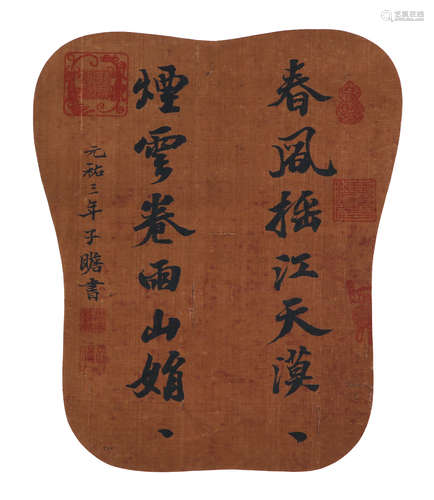 春風搖江天漠丶
煙雲卷雨山娟丶
元祐三年子瞻書